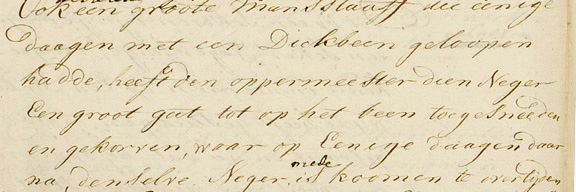 Ook een groote Mansslaaff die eenige
daagen met een Dickbeen geloopen
hadde, heeft den oppermeester dien Neger
Een groot gat tot op het been toegesneeden
en gekorven, waar op Eenige daagen daar
mede
na, denselve Neger is koomen te overlijden